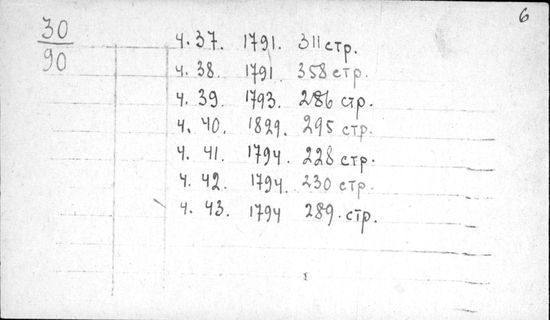 6
30
90
ч. 37. 1791. 311 стр.
ч. 38. 1791. 358 стр.
ч. 39. 1793. 286 стр.
ч. 40. 1829. 295 стр.
ч. 41. 1794. 228 стр.
ч. 42. 1794. 230 стр.
ч. 43. 1794 289. стр.